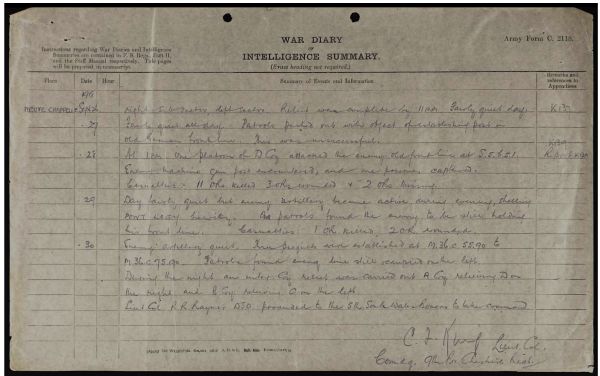 WAR DIARY
OF
INTELLIGENCE SUMMARY.
(Erase heading not required.)
Army Form C. 2118.
Instructions regarding War Diaries and Intelligence
Summaries are contained in F. S. Regs., Part II.
and the Staff Manual respectively. Title pages
will be prepared in manuscript.
Place Date Hour Summary of Events and Information Remarks and references to Appendices
NEUVE CHAPELLE Sept. Right Sub sector left sector. Relief were complete by 11 am. Fairly quiet day.
27 Fairly quiet all day. Patrols pushed out with object of establishing post in
old German front line. This was unsuccessful.
28 At 1 am. One platoon of D Coy attacked the enemy old front line at S.5.b.5.1.
Enemy machine gun post encountered, and one prisoner captured.
Casualties - 11 Ohs killed 3 Ohs wounded & 2 Ohs missing.
29 Day fairly quiet but enemy artillery became active during evening, shelling
PONT LOGY heavily. Patrols found the enemy to be still holding
his front line. Casualties: 1 Oh. killed, 2 Oh wounded.
30 Enemy artillery quiet. established at M.36.c.55.90 to
M.36.c.95.90. Patrols found enemy line still occupied on the left.
During the night an inter Coy relief was carried out A Coy relieving D on
the right and B Coy relieving C on the left.
Lieut Col R.R. Raymer DSO. proceeded to the 5th South Wales Borderers to take command
Lieut Col.
Comdg. 9th Bn Cheshire Regt.